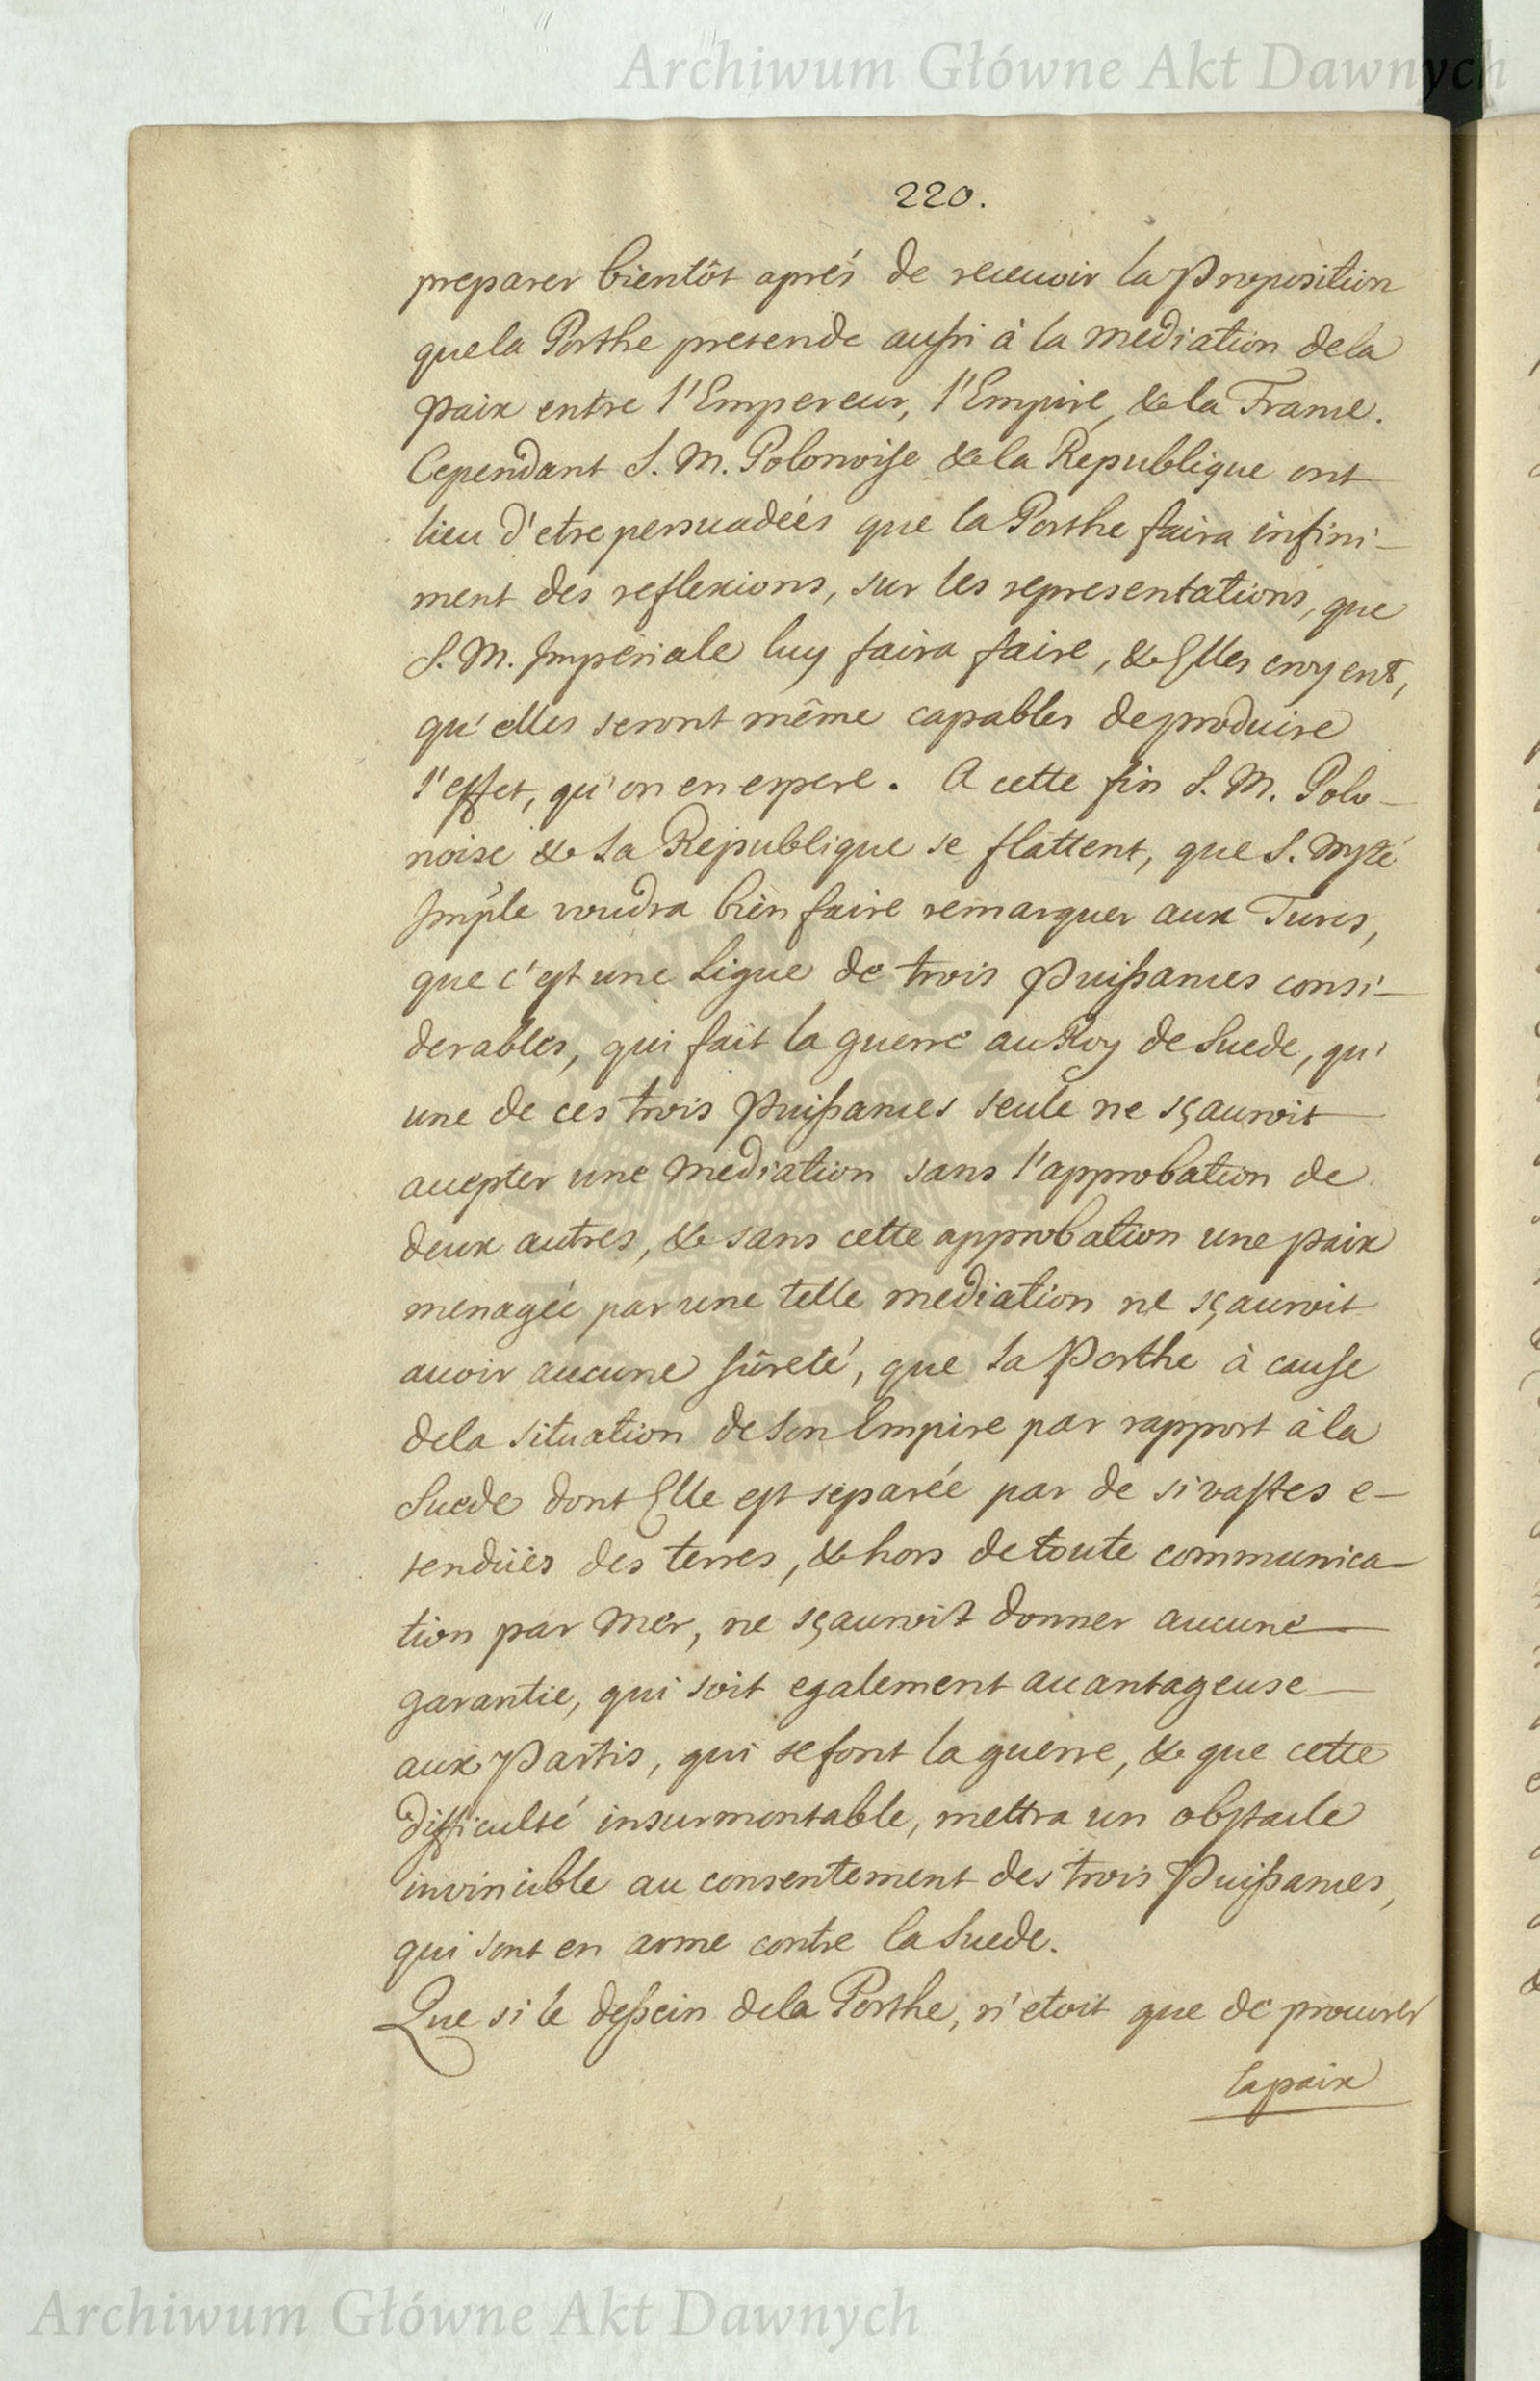 Archiwum Główne Akt Dawnych
220.
preparer bientôt aprés de recevoir la Proposition
que la Porthe pretende aussi à la mediation de la
paix entre l'Empereur, l'Empire, & la France.
Cependant S. M. Polonoise & la Republique ont
lieu d'etre persuadées que la Porthe faira infini-
ment des reflexions, sur les representations, que
S. M. Imperiale luy faira faire, & Elles croyent,
qu'elles seront même capables de produire
l'effet, qu'on en espere. A cette fin S. M. Polo-
noise & la Republique se flattent, que S. Mzté
Imple voudra bien faire remarquer aux Turcs,
que c'est une Ligue de trois Puissances consi-
derables, qui fait la guerre au Roy de Suede, qu'
une de ces trois Puissances seule ne sçauroit
accepter une mediation sans l'approbation de
deux autres, & sans cette approbation une paix
menagée par une telle mediation ne sçauroit
avoir aucune sûreté, que la Porthe à cause
de la situation de son Empire par rapport à la
Suede dont Elle est separée par de si vastes e-
tendües des terres, & hors de toute communica-
tion par mer, ne sçauroit donner aucune
garantie, qui soit egalement avantageuse
aux Partis, qui se font la guerre, & que cette
difficulté insurmontable, mettra un obstacle
invincible au consentement des trois Puissances,
qui sont en arme contre la Suede.
Que si le dessein de la Porthe, n'etoit que de procurer
la paix
Archiwum Główne Akt Dawnych